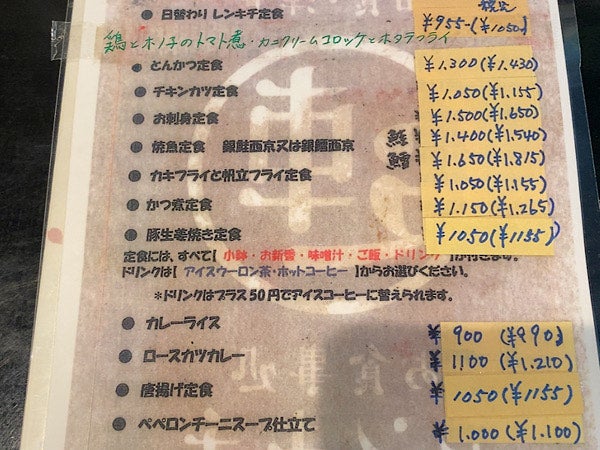 ● 日替わり レンキチ定食 ¥955-(¥1050)
鶏とキノ子のトマト煮・カニクリームコロッケとホタテフライ
● とんかつ定食 ¥1.300(¥1.430)
● チキンカツ定食 ¥1.050(¥1.155)
● お刺身定食 ¥1.500(¥1.650)
● 焼魚定食 銀鮭西京又は銀鱈西京 ¥1.400(¥1.540)
¥1.650(¥1.815)
● カキフライと帆立フライ定食 ¥1.050(¥1.155)
● かつ煮定食 ¥1.150(¥1.265)
● 豚生姜焼き定食 ¥1050(¥1155)
定食には、すべて【 小鉢・お新香・味噌汁・ご飯・ドリンク 】が付きます。
ドリンクは【 アイスウーロン茶・ホットコーヒー 】からお選びください。
*ドリンクはプラス50円でアイスコーヒーに替えられます。
● カレーライス ¥900(¥990)
● ロースカツカレー ¥1100(¥1.210)
● 唐揚げ定食 ¥1050(¥1155)
● ペペロンチーニスープ仕立て ¥1.000(¥1.100)